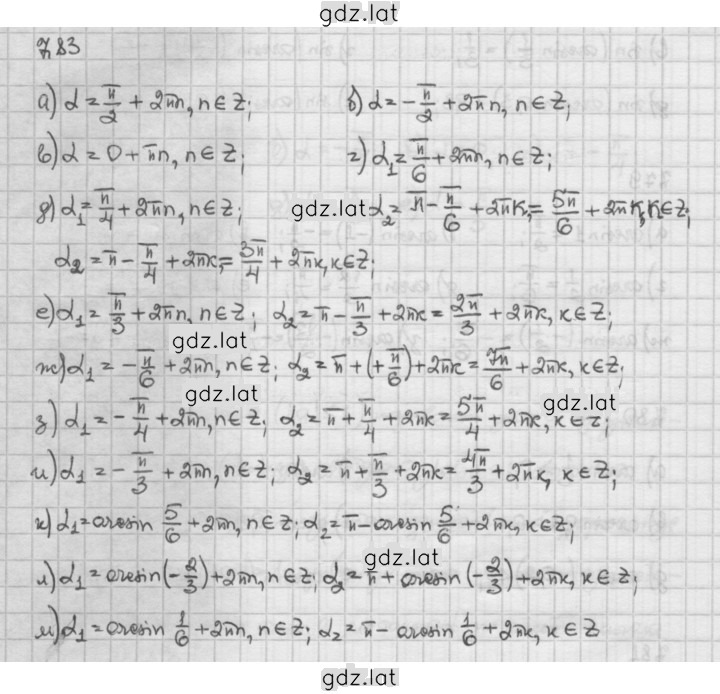 gdz.lat
7.83
а) α = π/2 + 2πn, n ∈ Z; б) α = -π/2 + 2πn, n ∈ Z;
в) α = 0 + πn, n ∈ Z; г) α₁ = π/6 + 2πn, n ∈ Z;
д) α₁ = π/4 + 2πn, n ∈ Z; gdz.lat α₂ = π - π/6 + 2πк, = 5π/6 + 2πк, к ∈ Z;
α₂ = π - π/4 + 2πк, = 3π/4 + 2πк, к ∈ Z;
е) α₁ = π/3 + 2πn, n ∈ Z; α₂ = π - π/3 + 2πк = 2π/3 + 2πк, к ∈ Z;
gdz.lat
ж) α₁ = -π/6 + 2πn, n ∈ Z; α₂ = π + (+π/6) + 2πк = 7π/6 + 2πк, к ∈ Z;
gdz.lat gdz.lat
з) α₁ = -π/4 + 2πn, n ∈ Z; α₂ = π + π/4 + 2πк = 5π/4 + 2πк, к ∈ Z;
и) α₁ = -π/3 + 2πn, n ∈ Z; α₂ = π + π/3 + 2πк = 4π/3 + 2πк, к ∈ Z;
к) α₁ = arcsin 5/6 + 2πn, n ∈ Z; α₂ = π - arcsin 5/6 + 2πк, к ∈ Z;
gdz.lat
л) α₁ = arcsin(-2/3) + 2πn, n ∈ Z; α₂ = π + arcsin(-2/3) + 2πк, к ∈ Z;
м) α₁ = arcsin 1/6 + 2πn, n ∈ Z; α₂ = π - arcsin 1/6 + 2πк, к ∈ Z
gdz.lat